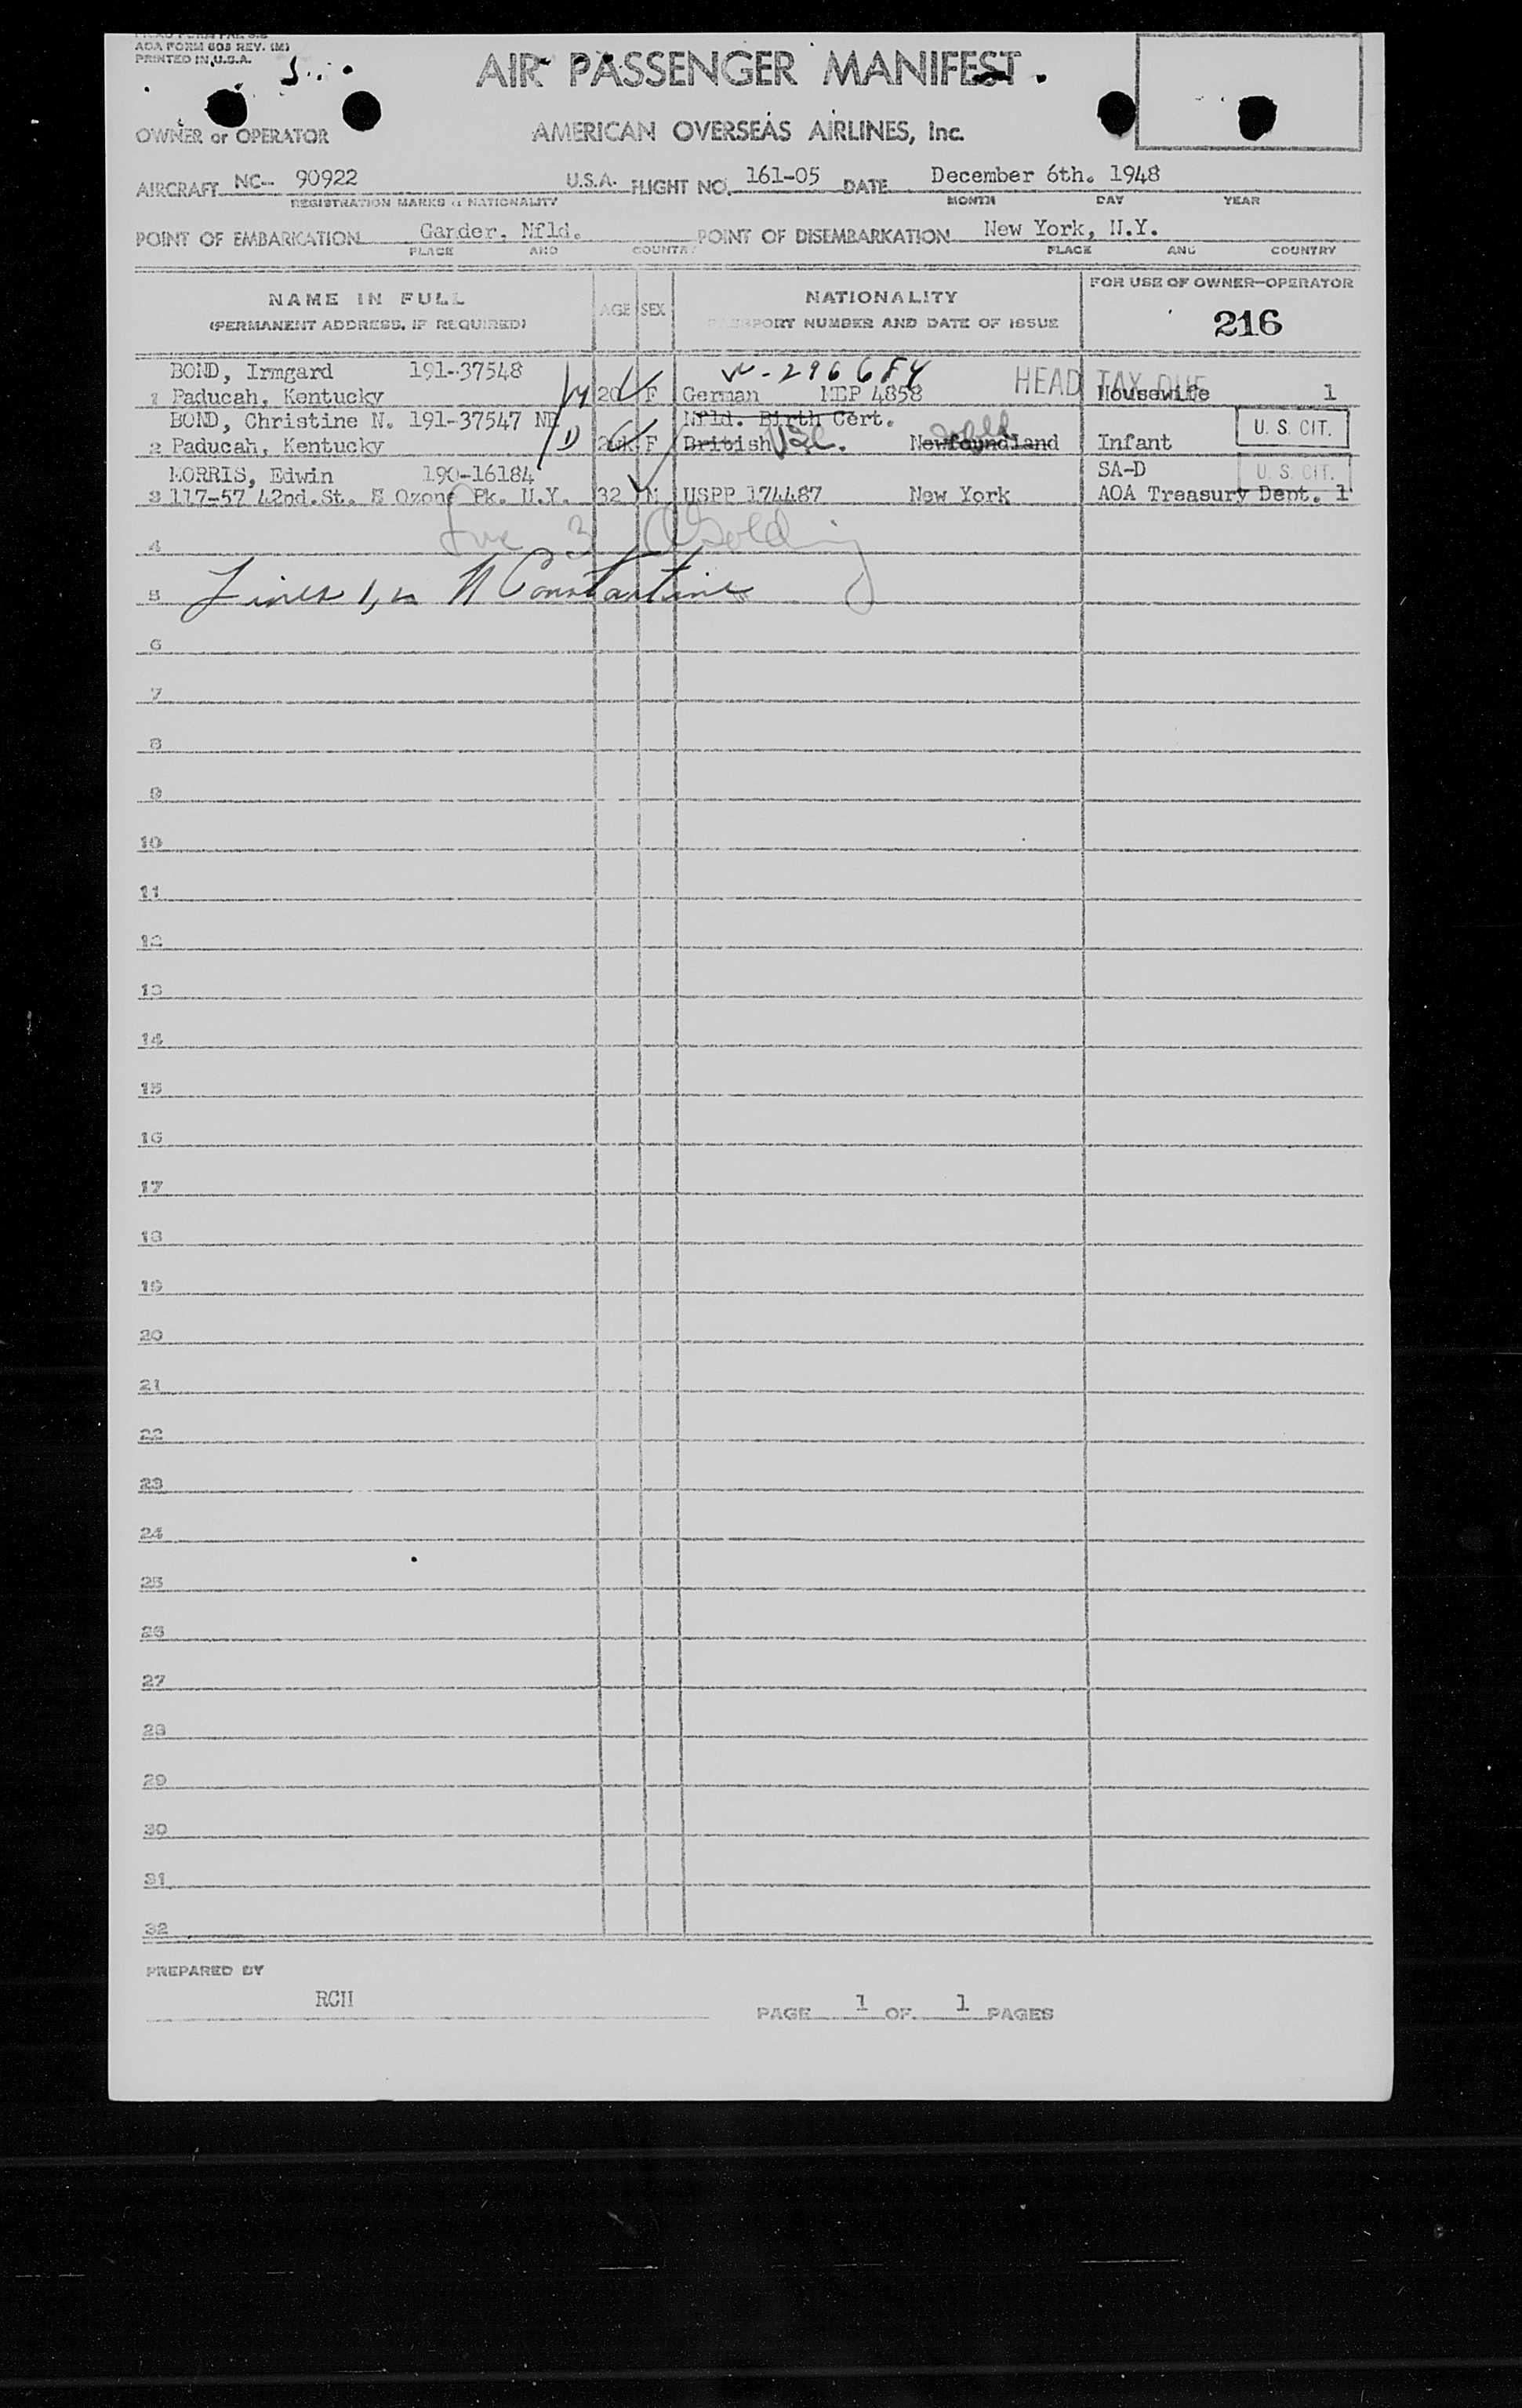 AOA FORM 603 REV. (M)
PRINTED IN U.S.A.
AIR PASSENGER MANIFEST
OWNER or OPERATOR AMERICAN OVERSEAS AIRLINES, Inc.
AIRCRAFT NC- 90922 U.S.A. FLIGHT NO. 161-05 DATE December 6th. 1948
REGISTRATION MARKS & NATIONALITY MONTH DAY YEAR
POINT OF EMBARKATION Gander, Nfld. POINT OF DISEMBARKATION New York, N.Y.
PLACE AND COUNTRY PLACE AND COUNTRY
NAME IN FULL AGE SEX NATIONALITY FOR USE OF OWNER-OPERATOR
(PERMANENT ADDRESS, IF REQUIRED) PASSPORT NUMBER AND DATE OF ISSUE 216
BOND, Irmgard 191-37548 V-296684 HEAD TAX DUE
1 Paducah, Kentucky M 20 F German MEP 4858 Housewife 1
BOND, Christine N. 191-37547 NB Nfld. Birth Cert. U. S. CIT.
2 Paducah, Kentucky D F British Newfoundland Infant
MORRIS, Edwin 190-16184 SA-D U. S. CIT.
3 117-57 42nd.St. Ozone Pk. N.Y. 32 M USPP 174487 New York AOA Treasury Dept. 1
3 Golding
4
5 Lines 1, 2 N Constantine
6
7
8
9
10
11
12
13
14
15
16
17
18
19
20
21
22
23
24
25
26
27
28
29
30
31
32
PREPARED BY
RCH
PAGE 1 OF 1 PAGES